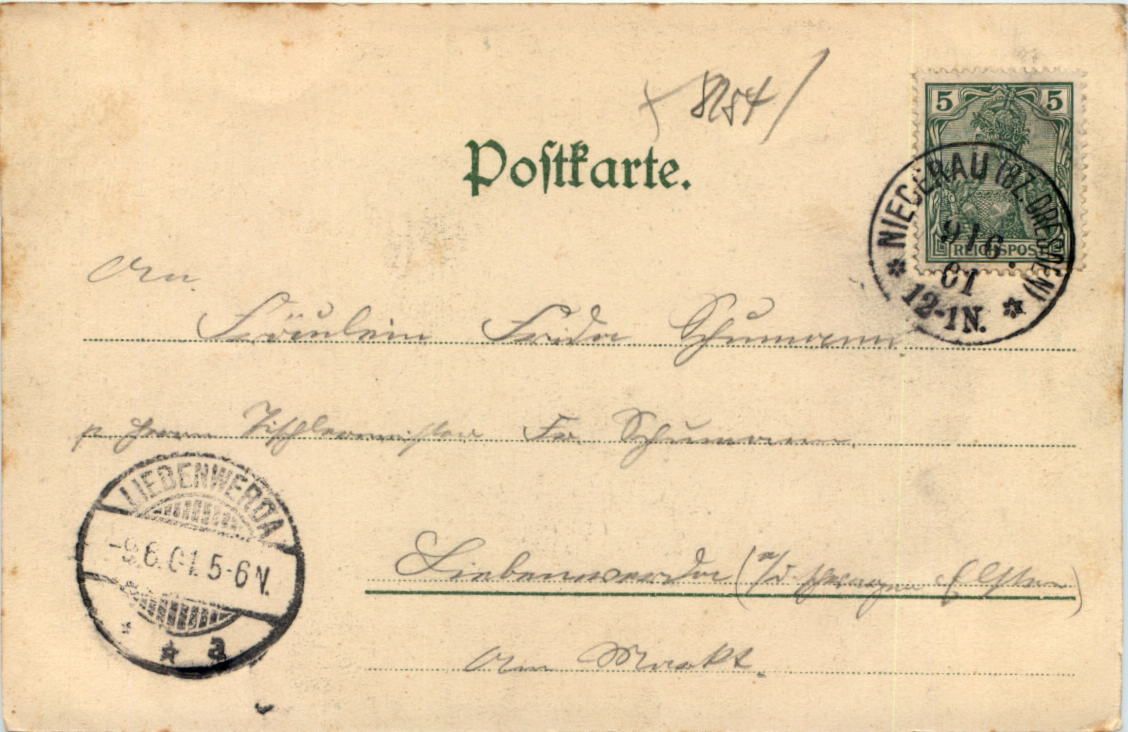 8154
5 5
REICHSPOST
NIEDERAU (BZ. DRESDEN)
9/6.
01
12-1N.
Postkarte.
An
Fräulein Frida Schumann
p. Herrn Tischlermeister Fr. Schumann.
LIEBENWERDA
-9.6.01.5-6N.
a
Liebenwerda (a/d schwarzen Elster)
Am Markt.